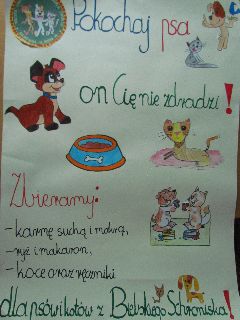 Pokochaj psa
on Cię nie zdradzi!
Zbieramy:
- karmę suchą i mokrą,
- ryż i makaron,
- koce oraz ręczniki
dla psów i kotów z Bielskiego Schroniska!